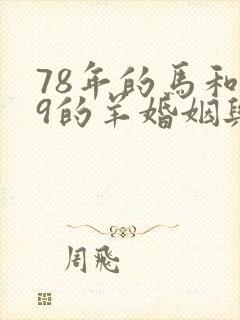 78年的馬和
9的羊婚姻與
周飛